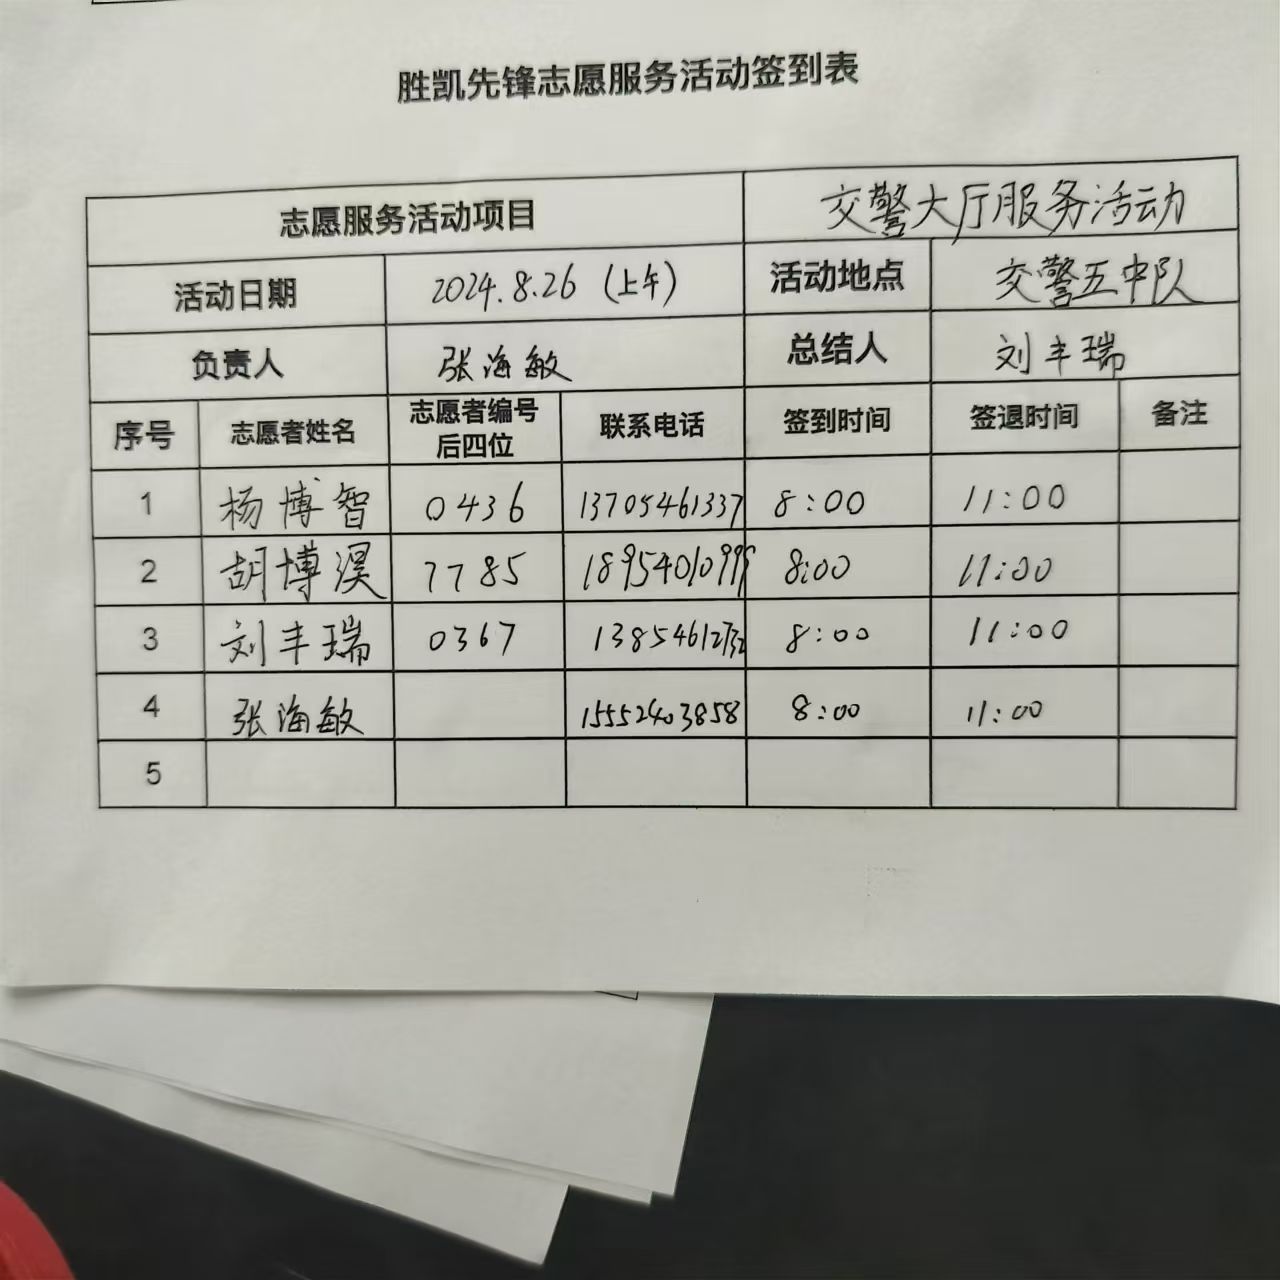 胜凯先锋志愿服务活动签到表
志愿服务活动项目 交警大厅服务活动
活动日期 2024.8.26（上午） 活动地点 交警五中队
负责人 张海敏 总结人 刘丰瑞
序号 志愿者姓名 志愿者编号后四位 联系电话 签到时间 签退时间 备注
1 杨博智 0436 13705461337 8:00 11:00
2 胡博淏 7785 18954010999 8:00 11:00
3 刘丰瑞 0367 13854612732 8:00 11:00
4 张海敏 15552403858 8:00 11:00
5